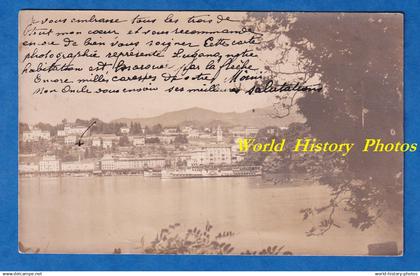 je vous embrasse tous les trois de
tout mon cœur et vous recommande
encore de bien vous soigner Cette carte
photographie représente Lugano, notre
habitation est
par la
Encore milles caresses de votre Mimi
Mon Oncle vous envoie ses meilleures salutations
World History Photos